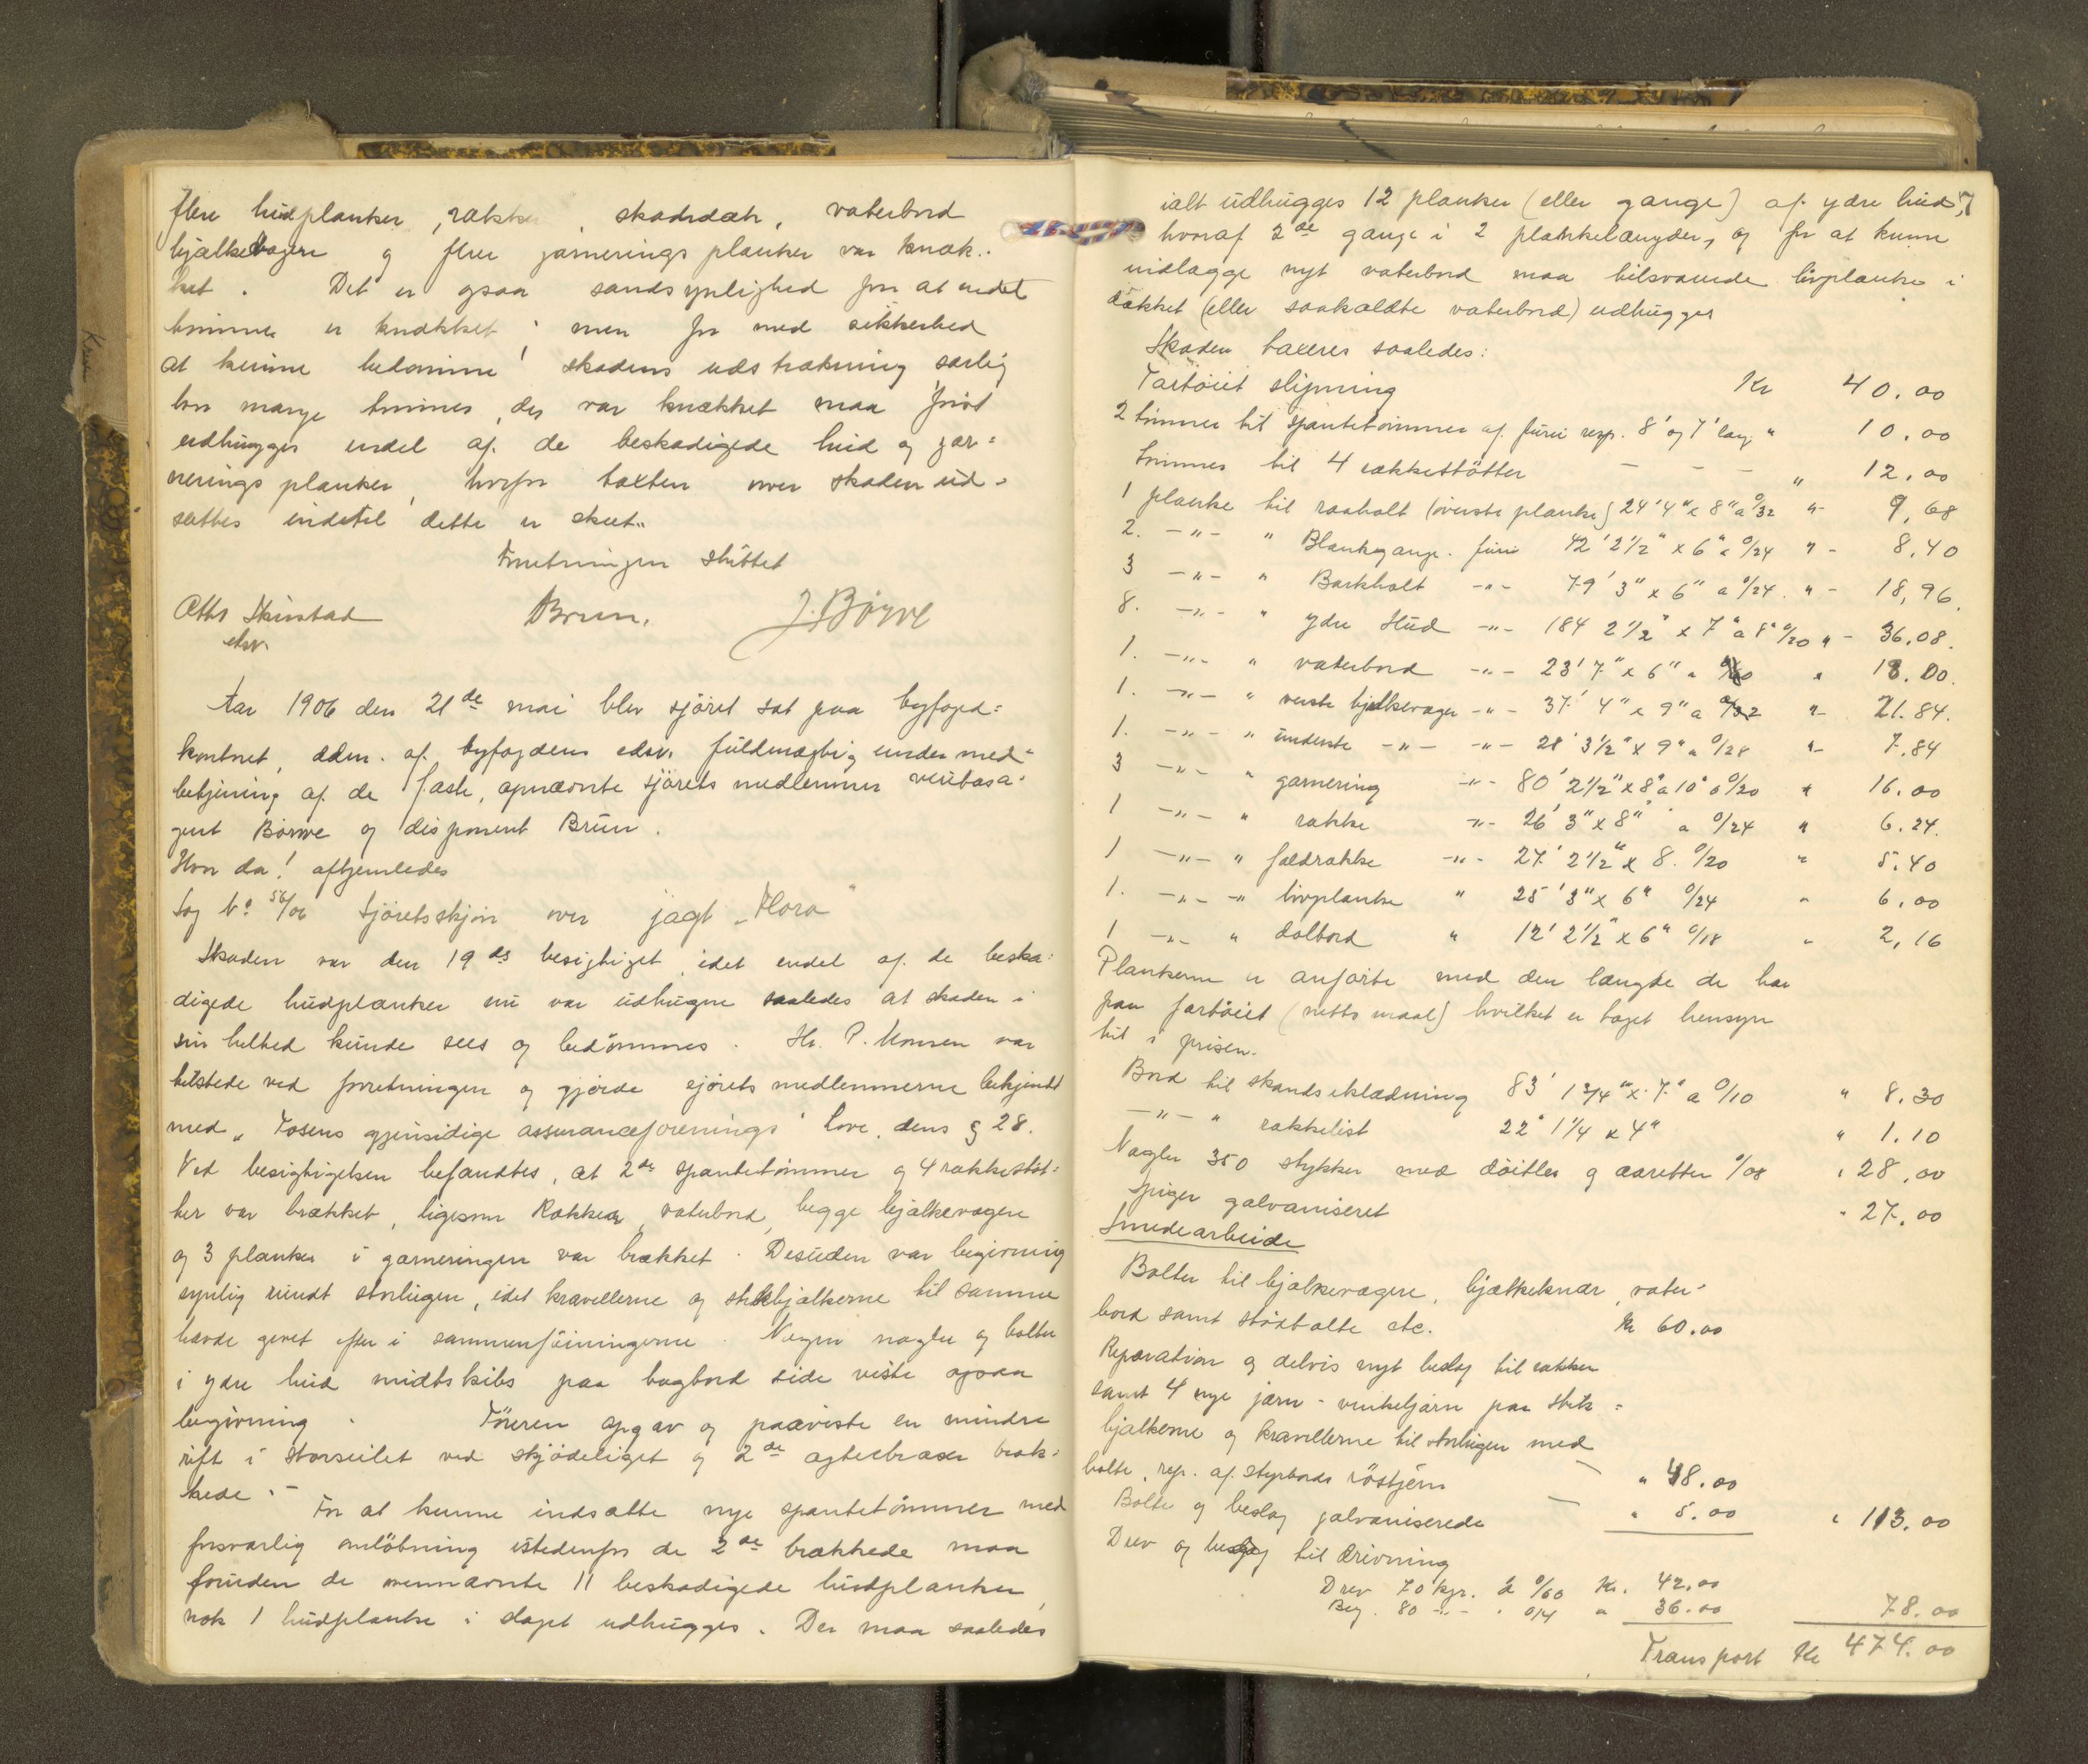 flere hudplanker, rækker, skandæk, vaterbord
bjælkevager og flere garneringsplanker var knæk-
ket. Det er ogsaa sandsynlighed for at endel
tømmer er knækket; men for med sikkerhed
at kunne bedømme skadens udstrækning særlig
hvor mange tømmer, der var knækket maa først
udhugges endel af de beskadigede hud og gar=
neringsplanker, hvorfor taxten over skaden ud=
sættes indtil dette er skeet.
Forretningen sluttet
Brun.
J. Børve
edsv.
Aar 1906 den 21de mai blev sjöret sat paa byfoged=
kontoret, adm. af byfogdens edsv. fuldmægtig under med=
betjening af de faste, opnævnte sjörets medlemmer
Børve og disponent Brun.
Hvor da! afhjemledes
Sag No 56/06 Sjöretsskjøn over jagt "Flora"
Skaden var den 19de besigtiget, idet endel af de beska=
digede hudplanker nu var udhugne saaledes at skaden i
sin helhed kunde sees og bedömmes. Hr. P. Monsen var
tilstede ved forretningen og gjorde sjörets medlemmerne bekjendt
med "Fosens gjensidige assuranceforenings" love, dens § 28.
Ved besigtigelsen befandtes, at 2de spantetömmer og 4 rækkestöt=
ter var brækket, ligesom Rækker, vaterbord, begge bjælkevægere
og 3 planker i garneringen var brækket. Desuden var begivning
synlig rundt storlugen, idet kravellerne og stikbjælkerne til samme
havde givet efter i sammenföiningerne. Nogen nagler og bolter
i ydre hud midtskibs paa bagbord side viste ogsaa
begivning. Föreren opgav og paaviste en mindre
rift i storseilet ved skjödeliget og 2de agterbraser bræk=
kede. - For at kunne indsætte nye spantetömmer med
forsvarlig omlöbning istedenfor de 2de brækkede maa
foruden de ovennævnte 11 beskadigede hudplanker,
nok 1 hudplanke i slaget udhugges. Der maa saaledes
7
ialt udhugges 12 planker (eller gange) af ydre hud,
hvoraf 2de gange i 2 plankelængder, og for at kunne
nidlægge nyt vaterbord maa tilsvarende livplanke i
dækket (eller saakaldte vaterbord) udhugges
Skaden taxeres saaledes:
Fartöiet slipning Kr 40.00
2 tömmer til spantetömmer af furu resp. 8' og 7' lang " 10.00
Tömmer til 4 rækkestötter - - - " 12.00
1 planke til raaholt (överste planke) 24' 4" x 8" a 0/32 "- 9,68
2. -"- " Blankgange. furu 42' 2 1/2" x 6" a 0/24 "- 8.40
3 -"- " Barkholt -"- 79' 3" x 6" a 0/24. "- 18,96.
8. -"- " ydre Hud -"- 184 2 1/2" x 7" a 8" 0/20 "- 36.08.
1. -"- " vaterbord -"- 23' 7" x 6" a " 18.00.
1. -"- " överste bjelkevager -"- 37' 4" x 9" a 0/32 "- 21.84.
1. -"- " underste -"- -"- 28' 3 1/2" x 9" a 0/28 "- 7.84
3 -"- " garnering -"- 80' 2 1/2" x 8" a 10" a 0/20 " 16.00
1 -"- " række -"- 26' 3" x 8" a 0/24 " 6.24.
1 -"- " faldrække -"- 27' 2 1/2" x 8. 0/20 " 5.40
1. -"- -" livplanke " 25' 3" x 6" 0/24 " 6.00
1 -"- " dolbord " 12' 2 1/2" x 6" 0/18 " 2,16
Plankerne er anförte med den længde de har
paa fartöiet (netto maal) hvilket er taget hensyn
til i prisen.
Bord til skandseklædning 83' 1 3/4" x 7" a 0/10 " 8.30
-"- " rækkelist 22' 1 1/4 x 4" " 1.10
Nagler 350 stykker med döitler og aaretter 0/08 " 28.00
Spiger galvaniseret " 27.00
Smedearbeide
Bolter til bjælkevægere, bjælkeknær, vater-
bord samt stödbolte etc. Kr 60.00
Reparation og delvis nyt beslag til rækker
samt 4 nye jærn - vinkeljærn paa stik=
bjælkerne og kravellerne til storlugen med
bolte, rep. af styrbords röstjern - " 48.00
Bolte og beslag galvaniserede - " 5.00 " 113.00
Drev og beg til drivning
Drev 70 kgr. à 0/60 Kr. 42.00
Beg. 80 -"- " 0/4 " 36.00 78.00
Transport Kr 474.00